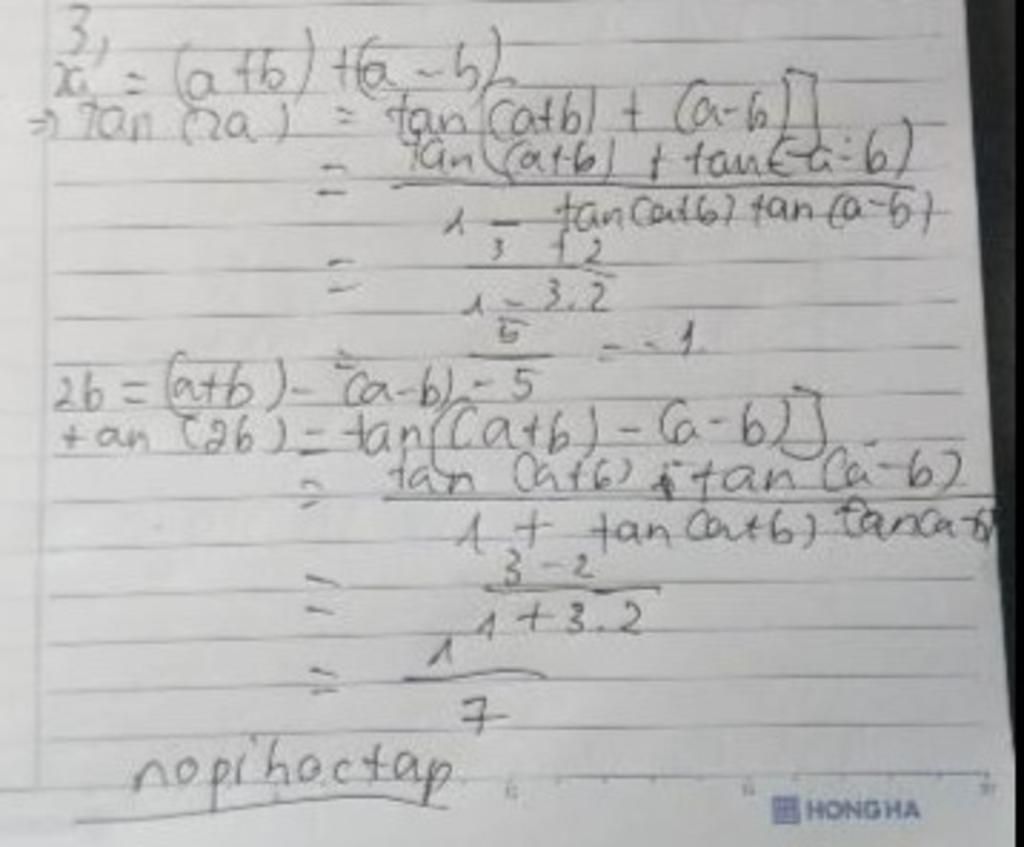 3,
= (a+b) + (a-b)
=> tan (2a) = tan[(a+b) + (a-b)]
= tan (a+b) + tan(a-b) / 1 - tan(a+b) tan(a-b)
= 3 + 2 / 1 - 3.2
= 5 / -5 = -1
2b = (a+b) - (a-b)
tan (2b) = tan[(a+b) - (a-b)]
= tan (a+b) - tan (a-b) / 1 + tan(a+b) tan(a-b)
= 3 - 2 / 1 + 3.2
= 1 / 7
nopihoctap
HONG HA